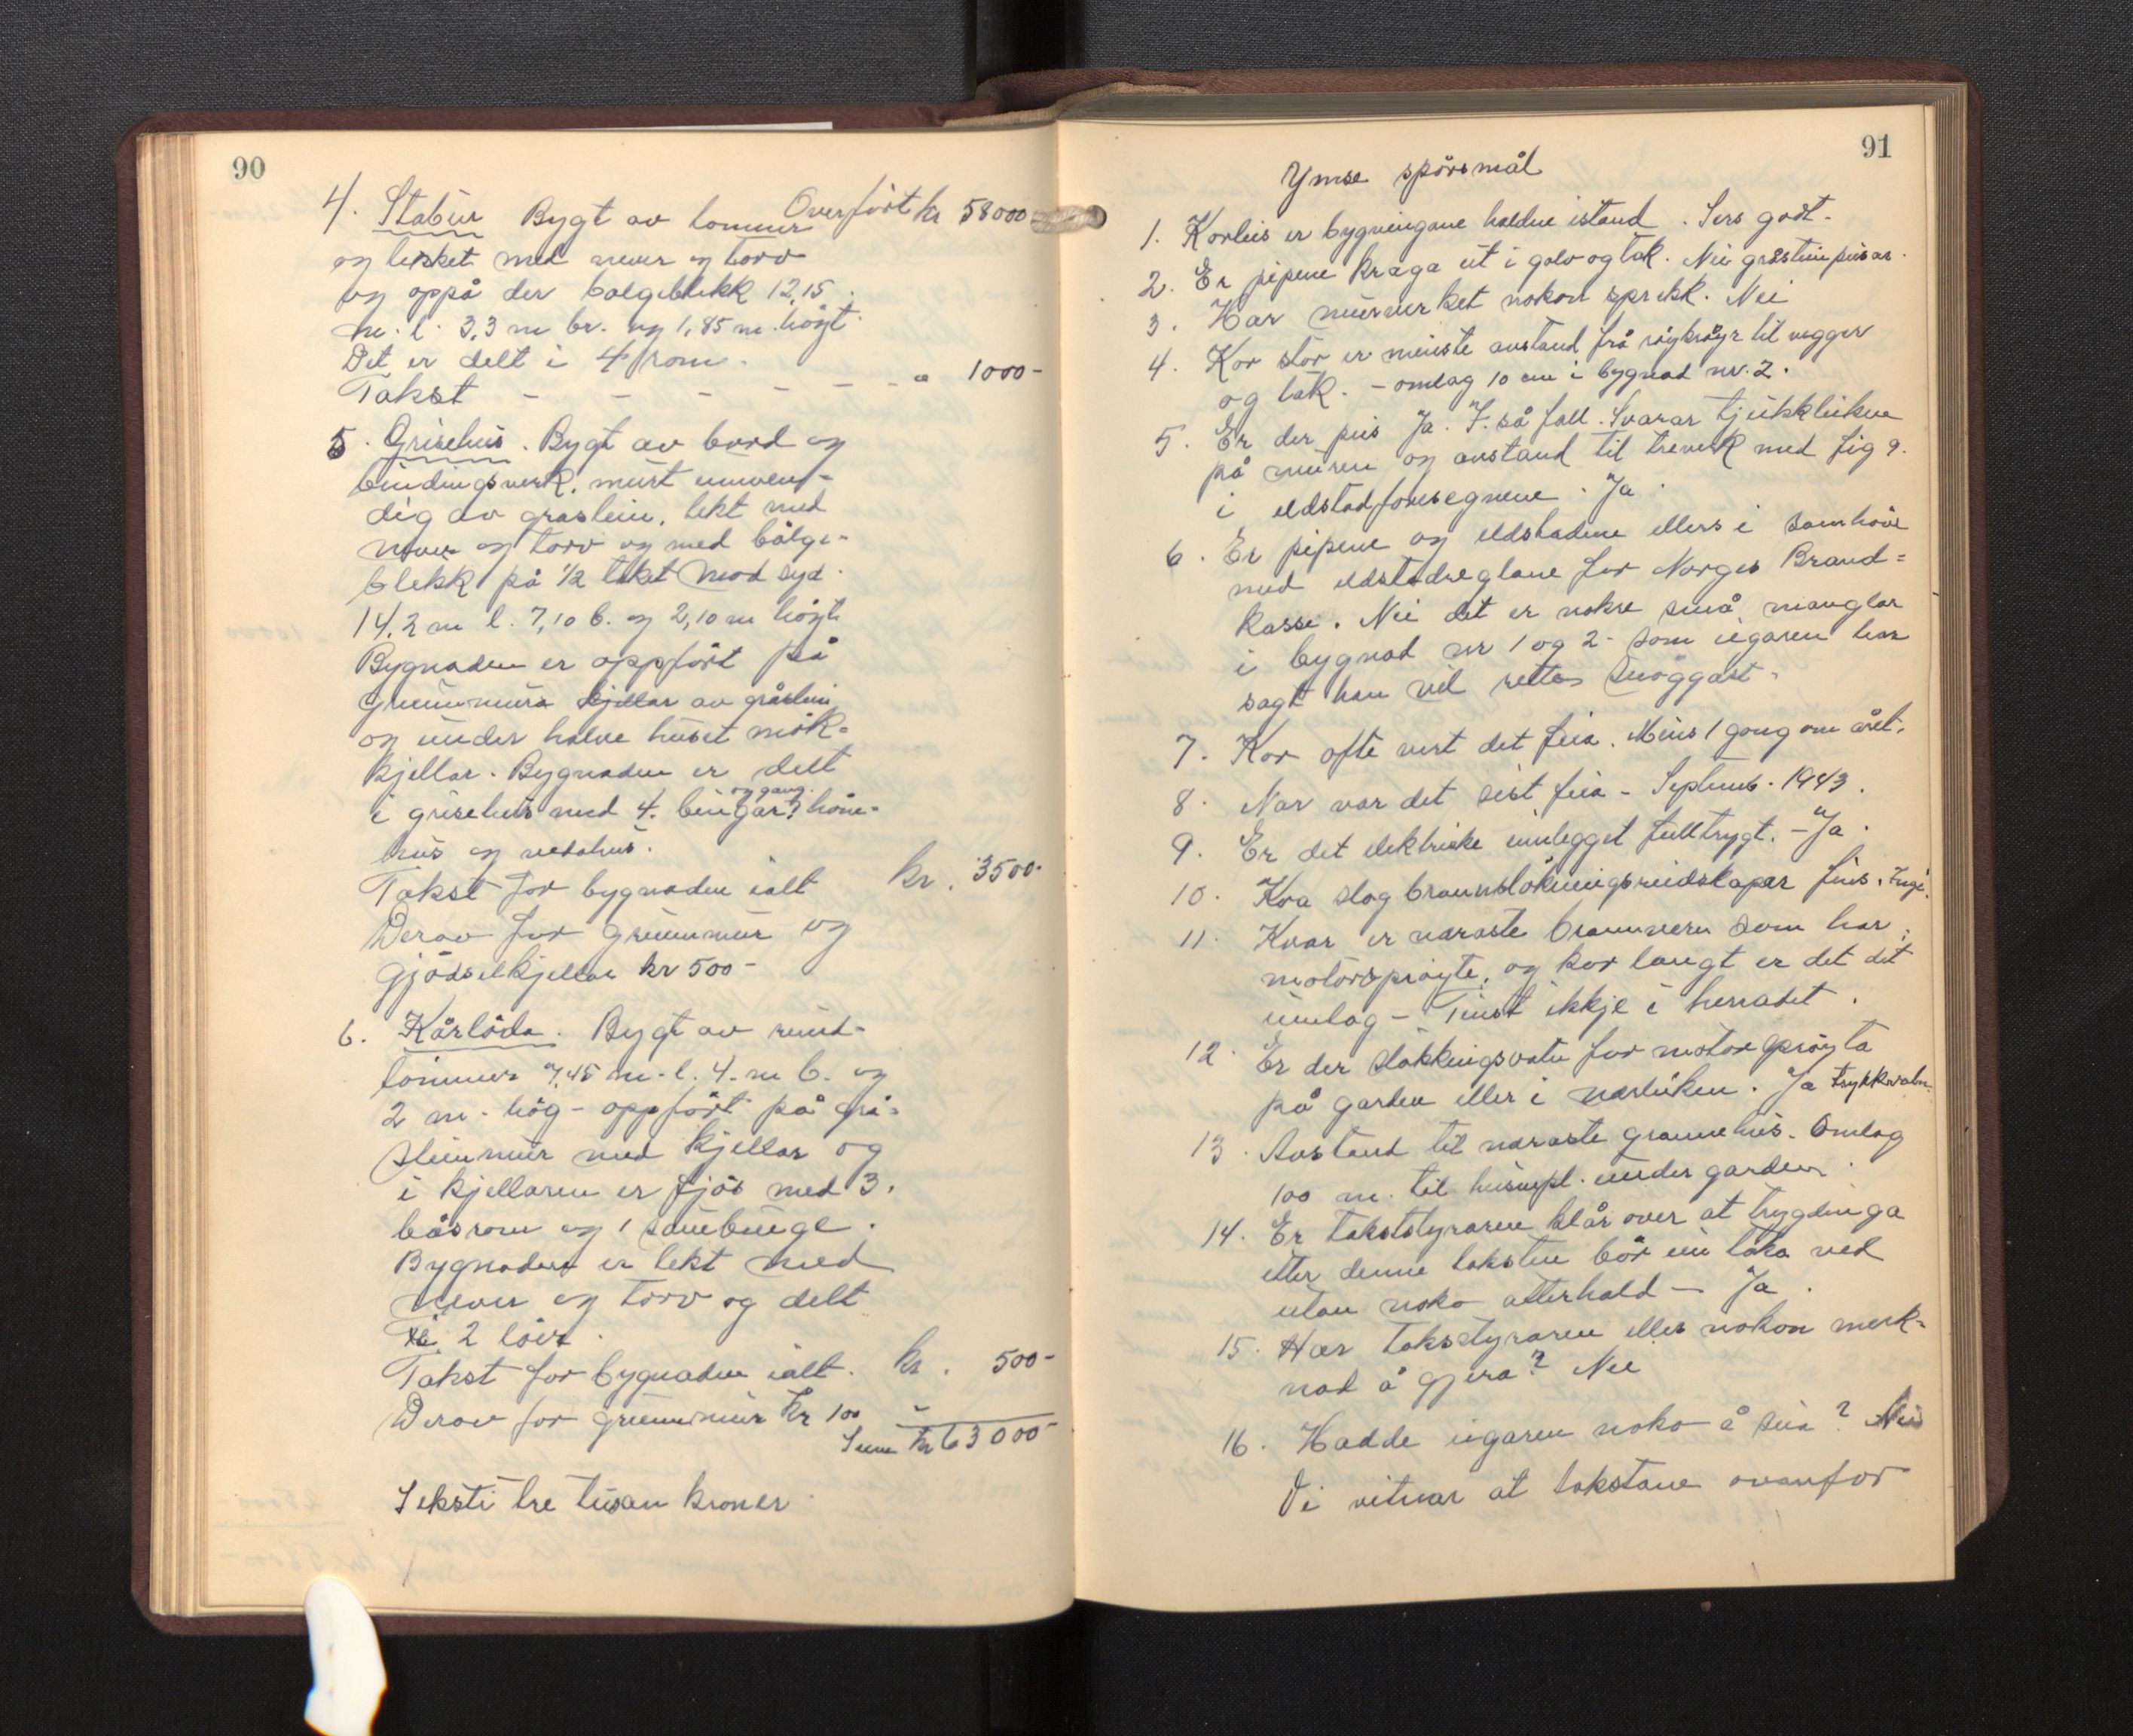 90
Overført kr 58000
4. Stabur Bygt av tommer
og tekket med never og torv
og oppå der bølgeblekk 12,15
m. l. 3,3 m br. og 1,85 m. högt.
Det er delt i 4 rom.
Takst - - - - - " 1000-
5. Grisehus. Bygt av bord og
bindingsverk, murt innven-
dig av grastein, tekt med
never og torv og med bölge-
blekk på 1/2 taket mod syd.
14,2 m l. 7,10 b. og 2,10 m högt
Bygnaden er oppfört på
grunnmura kjellar av gråstein
og under halve huset mök-
kjellar. Bygnaden er delt
og gang.
i grisehus med 4. bingar, höne-
hus og vedahus.
Takst for bygnaden ialt kr. 3500-
Derav for grunnmur og
gjödselkjellar kr 500-
6. Kårlöda. Bygt av rund-
tömmer 7,45 m. l. 4. m b. og
2 m. hög - oppfört på grå-
steinmur med kjellar og
i kjellaren er fjös med 3.
båsrom og 1 saubinge.
Bygnaden er tekt med
never og torv og delt
i 2 löer.
Takst for bygnaden ialt. kr. 500-
Derav for grunnmur kr 100
Sum kr 63000-
Seksti tre tusan kroner
91
Ymse spörsmål
1. Korleis er bygningane haldne istand. Sers godt.
2. Er pipene kraga ut i golv og tak. Nei gråsteinpeisar.
3. Har murverket nokon sprekk. Nei
4. Kor stor er minste avstand frå röykröyr til vegger
og tak. - omlag 10 cm i bygnad nr. 2.
5. Er der peis Ja. I så fall. Svarar tjukkleiken
på muren og avstand til treverk med fig 9.
i eldstadforesegnene. Ja.
6. Er pipene og eldstadene ellers i samhöve
med eldstadreglane for Norges Brand-
kasse. Nei det er nokre små manglar
i bygnad nr 1 og 2 - som eigaren har
sagt han vil retta snöggast.
7. Kor ofte vert det feia. Minst 1 gong om året.
8. Nar var det sist feia - Septemb. 1943.
9. Er det elektriske innlegget fulltrygt. - Ja.
10. Kva slag brannslökningsreidskaper fins. Ingi.
11. Kvar er næraste brannvern som har
motorspröyte, og kor langt er det dit
innlag - Finst ikkje i herradet.
12. Er der slökkingsvatn for motorspröyta
på garden eller i nærleiken. Ja trykkvatn.
13. Avstand til næraste grannehus. Omlag
100 m. til husmpl. under garden.
14. Er takststyraren klår over at trygdinga
etter denne taksten bör ein taka ved
utan noko atterhald - Ja.
15. Har takstyraren elles nokon merk-
nad å gjera? Nei
16. Hadde eigaren noko å seia? Nei
Vi vitnar at takstane ovanfor